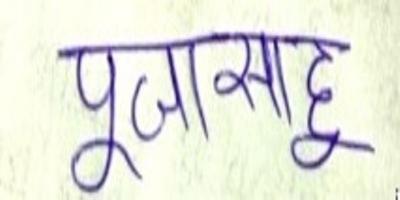 पूजा साहू